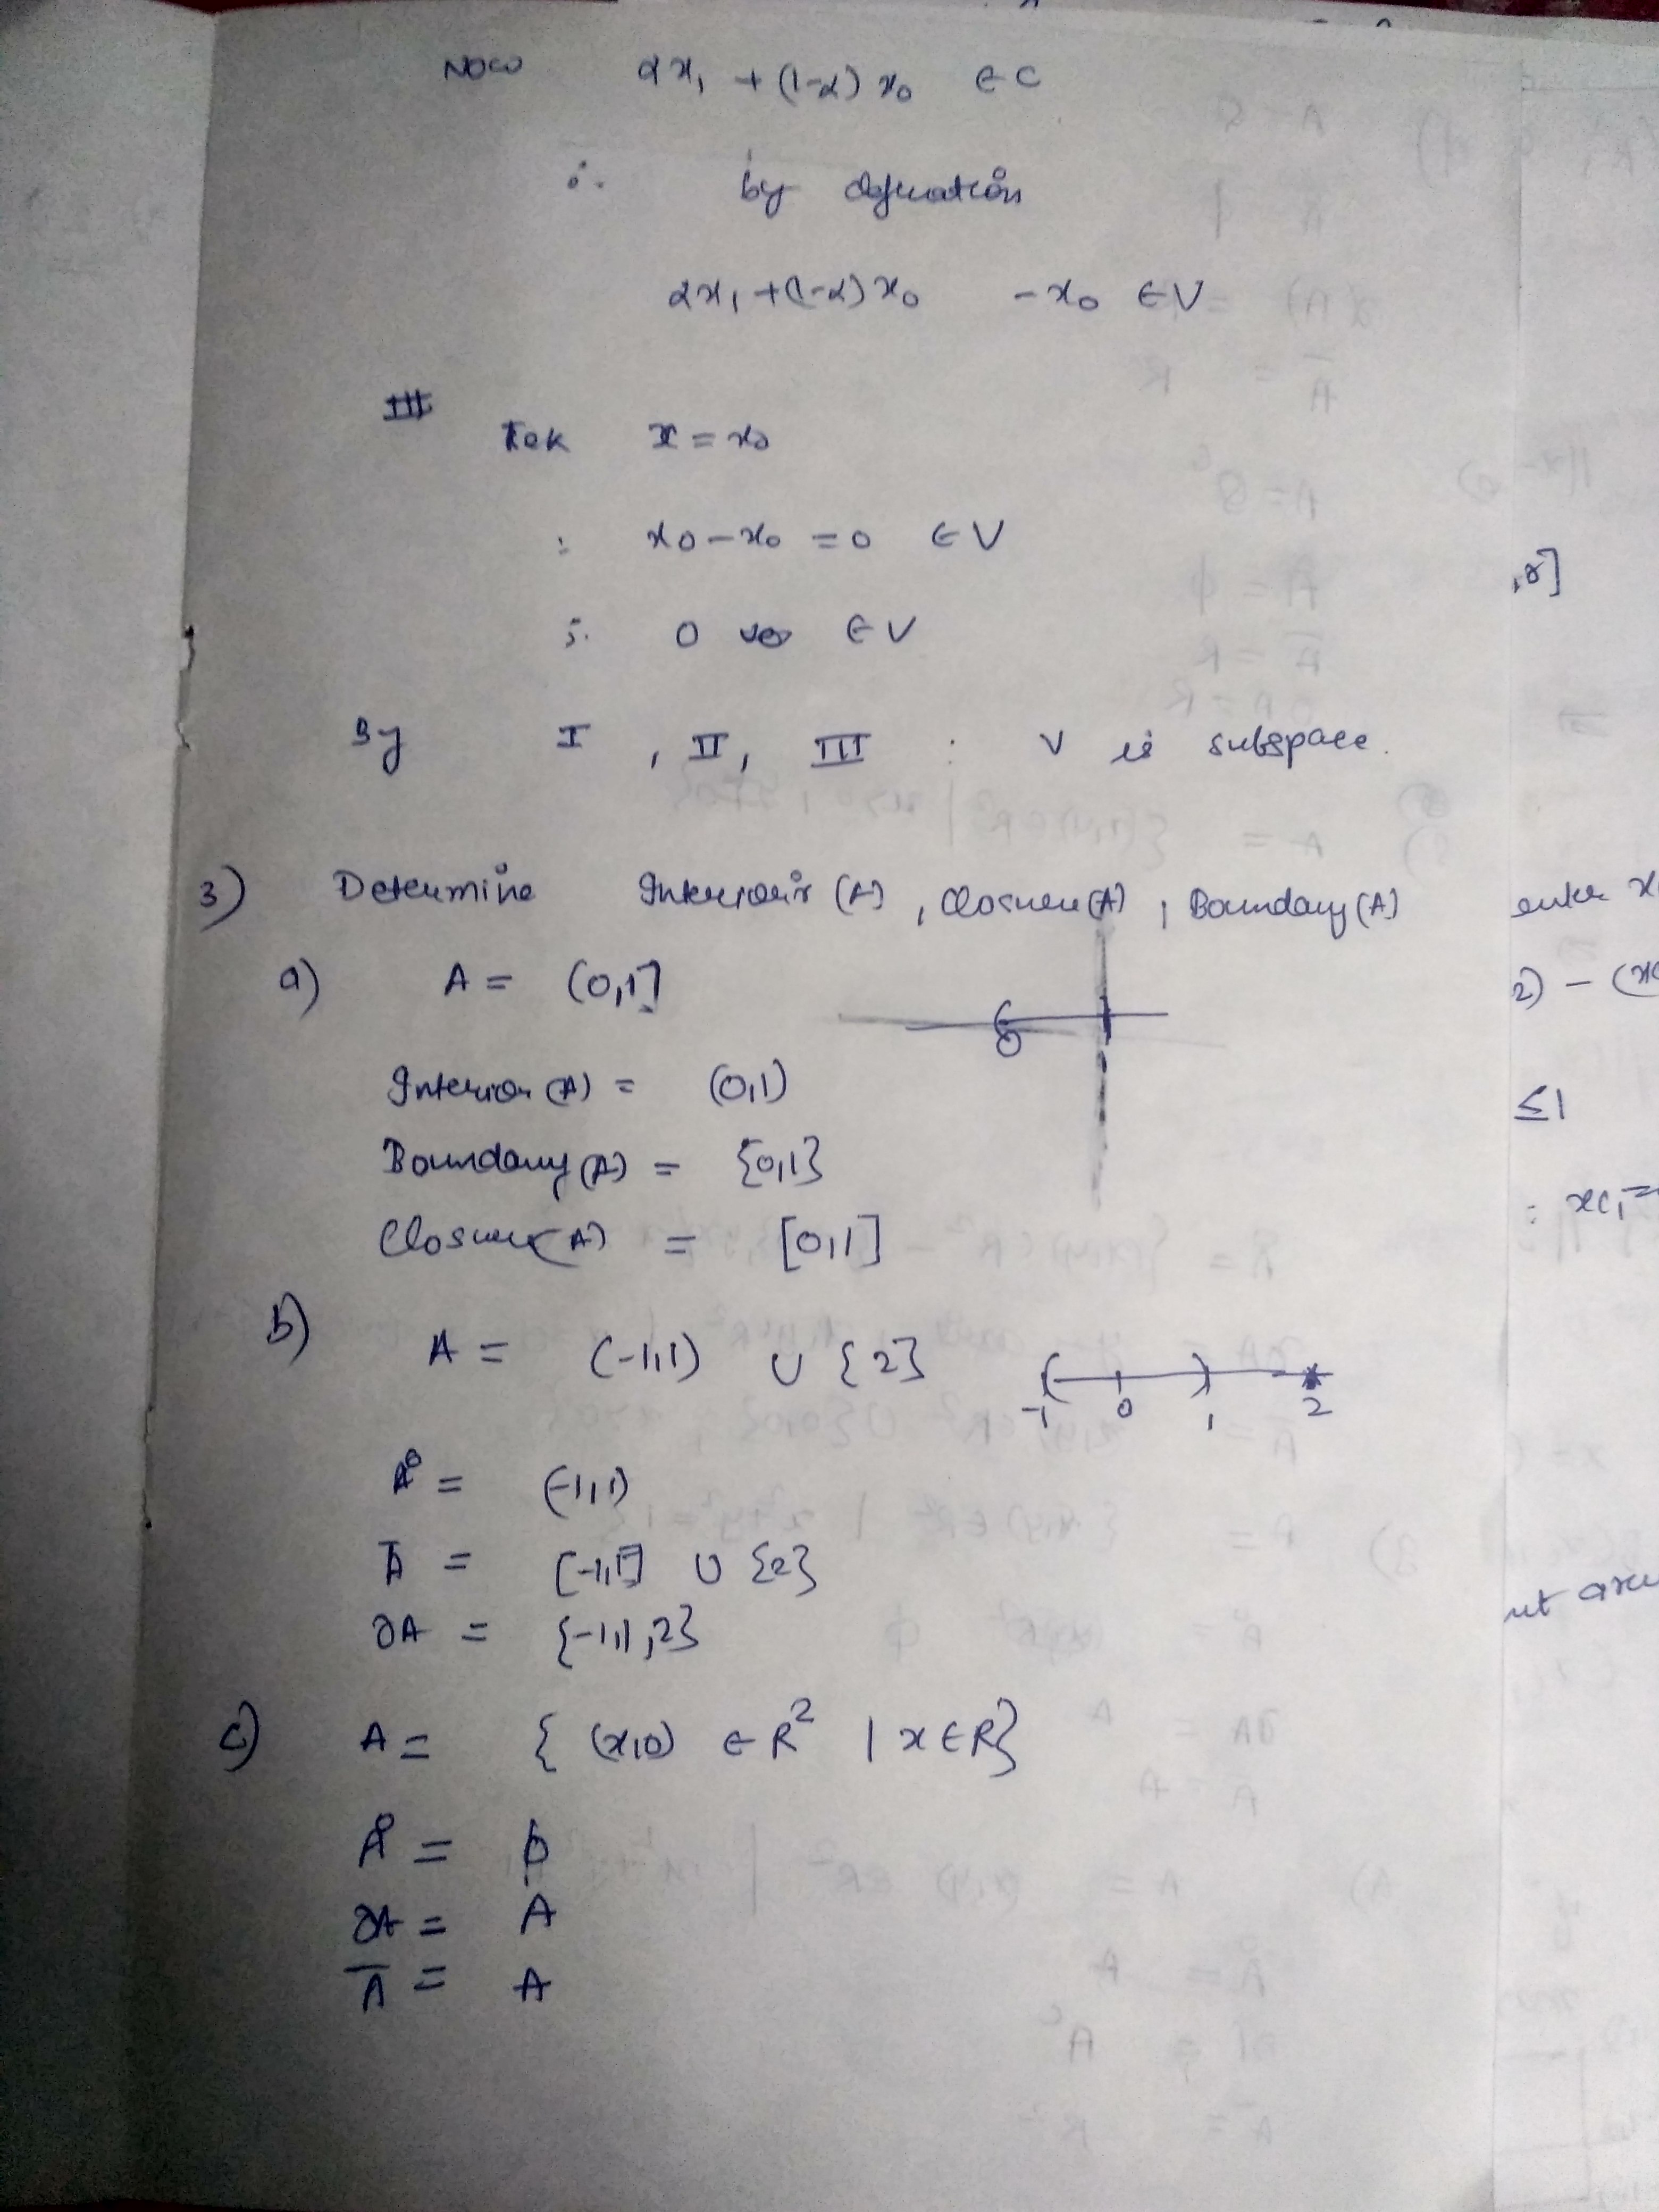 Now αx₁ + (1-α) x₀ ∈ C
∴ by defination
αx₁ + (1-α) x₀ - x₀ ∈ V
III
Tek x = x₀
: x₀ - x₀ = 0 ∈ V
∴ 0 vec ∈ V
By I, II, III : V is subspace.
3) Determine Interioir (A), Closure (A), Boundary (A)
a) A = (0,1]
0
Interior (A) = (0,1)
Boundary (A) = {0,1}
Closure (A) = [0,1]
b) A = (-1,1) ∪ {2}
-1 0 1 2
Å = (-1,1)
Ā = [-1,1] ∪ {2}
∂A = {-1,1,2}
c) A = { (x,0) ∈ R² | x ∈ R}
Å = ϕ
∂A = A
Ā = A
,8]
2) - (x
≤1
: x₁ =